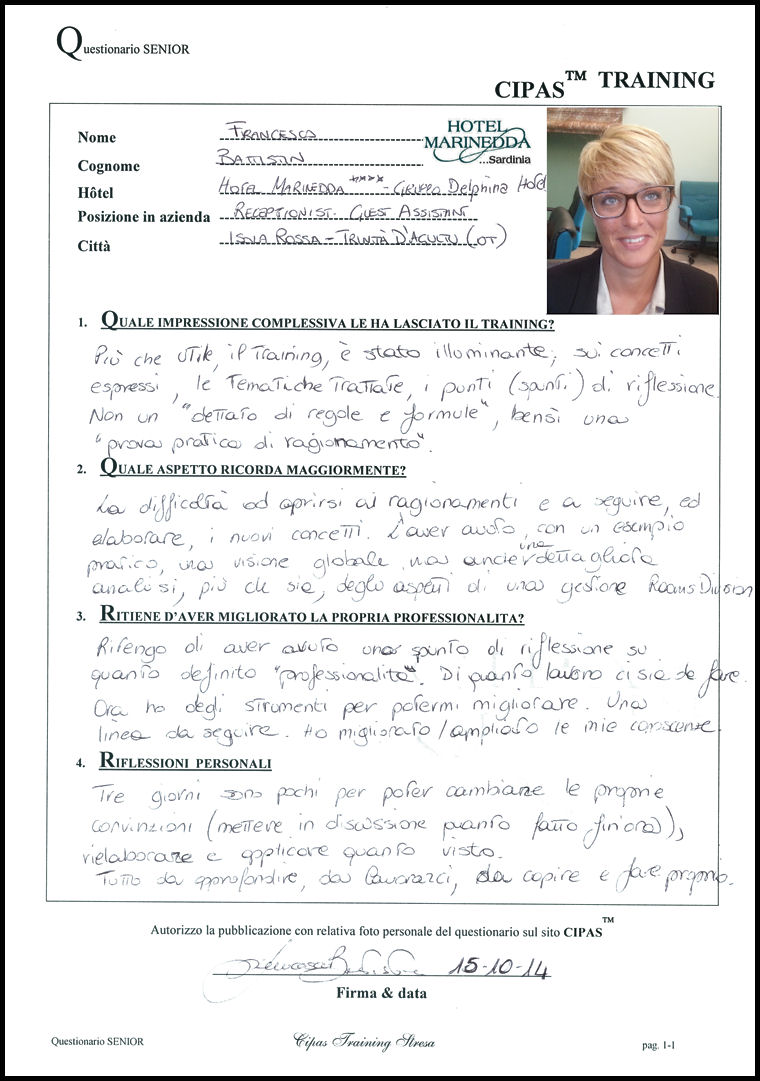 Questionario SENIOR
CIPAS™ TRAINING
Nome FRANCESCA
Cognome BATTISTIN
HOTEL
MARINEDDA
...Sardinia
Hôtel HOTEL MARINEDDA **** - GRUPPO Delphina Hotel
Posizione in azienda RECEPTIONIST. GUEST ASSISTANT
Città ISOLA ROSSA - TRINITÀ D'AGULTU (OT)
1. QUALE IMPRESSIONE COMPLESSIVA LE HA LASCIATO IL TRAINING?
Più che utile, il Training, è stato illuminante; sui concetti
espressi, le Tematiche Trattate, i punti (spunti) di riflessione.
Non un "dettato di regole e formule", bensì una
"prova pratica di ragionamento".
2. QUALE ASPETTO RICORDA MAGGIORMENTE?
La difficoltà ad aprirsi ai ragionamenti e a seguire, ed
elaborare, i nuovi concetti. L'aver avuto, con un esempio
pratico, una visione globale, ma una dettagliata
analisi, più che sia, degli aspetti di una gestione Rooms Division
3. RITIENE D'AVER MIGLIORATO LA PROPRIA PROFESSIONALITA?
Ritengo di aver avuto uno spunto di riflessione su
quanto definito "professionalità". Di quanto lavoro ci sia da fare.
Ora ho degli strumenti per potermi migliorare. Una
linea da seguire. Ho migliorato / ampliato le mie conoscenze.
4. RIFLESSIONI PERSONALI
Tre giorni sono pochi per poter cambiare le proprie
convinzioni (mettere in discussione quanto fatto fin'ora),
rielaborare e applicare quanto visto.
Tutto da approfondire, da lavorarci, da capire e fare proprio.
Autorizzo la pubblicazione con relativa foto personale del questionario sul sito CIPAS™
Francesca Battistin 15-10-14
Firma & data
Questionario SENIOR
Cipas Training Stresa
pag. 1-1